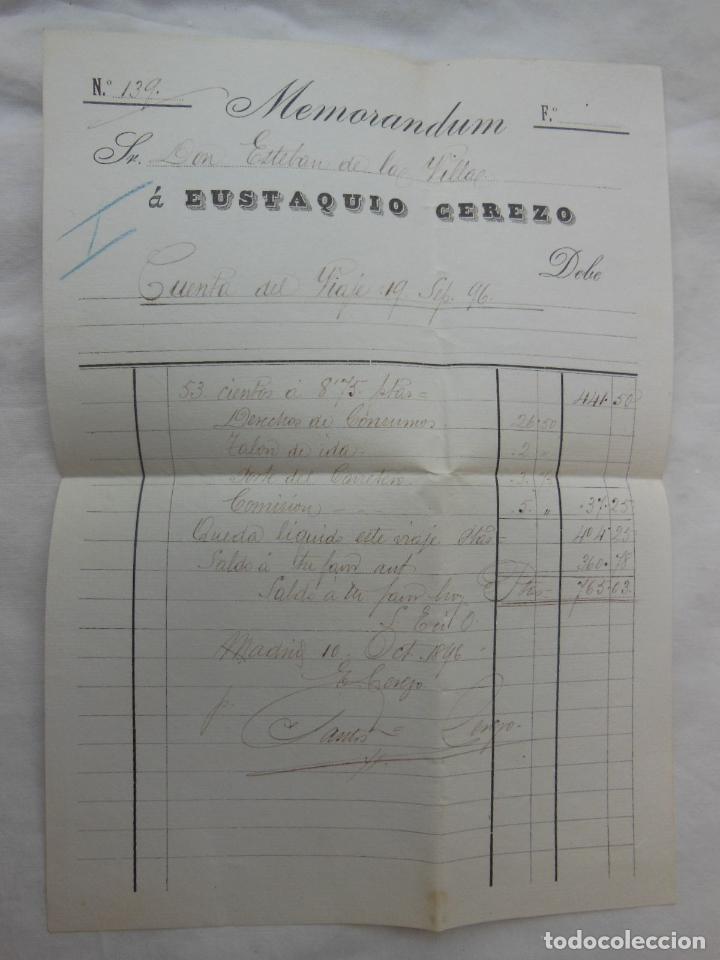 N.º 139.
Memorandum
F.º
Sr. Don Esteban de la Villa
á EUSTAQUIO CEREZO
Debe
Cuenta del Viaje 19 Sep. 96.
53 cientos á 8'75 ptas = 441.50
Derechos de Consumos 26.50
Talon de ida 2 "
Porte del Carretero 3.75
Comision 5. " 37.25
Queda líquido este viaje Ptas = 404.25
Saldo á tu favor ant 360.78
Saldo á tu favor hoy Ptas = 765.03
S. E. ú O.
Madrid 10 Oct. 1896
E. Cerezo
p.
Santos Cerezo
todocoleccion.net